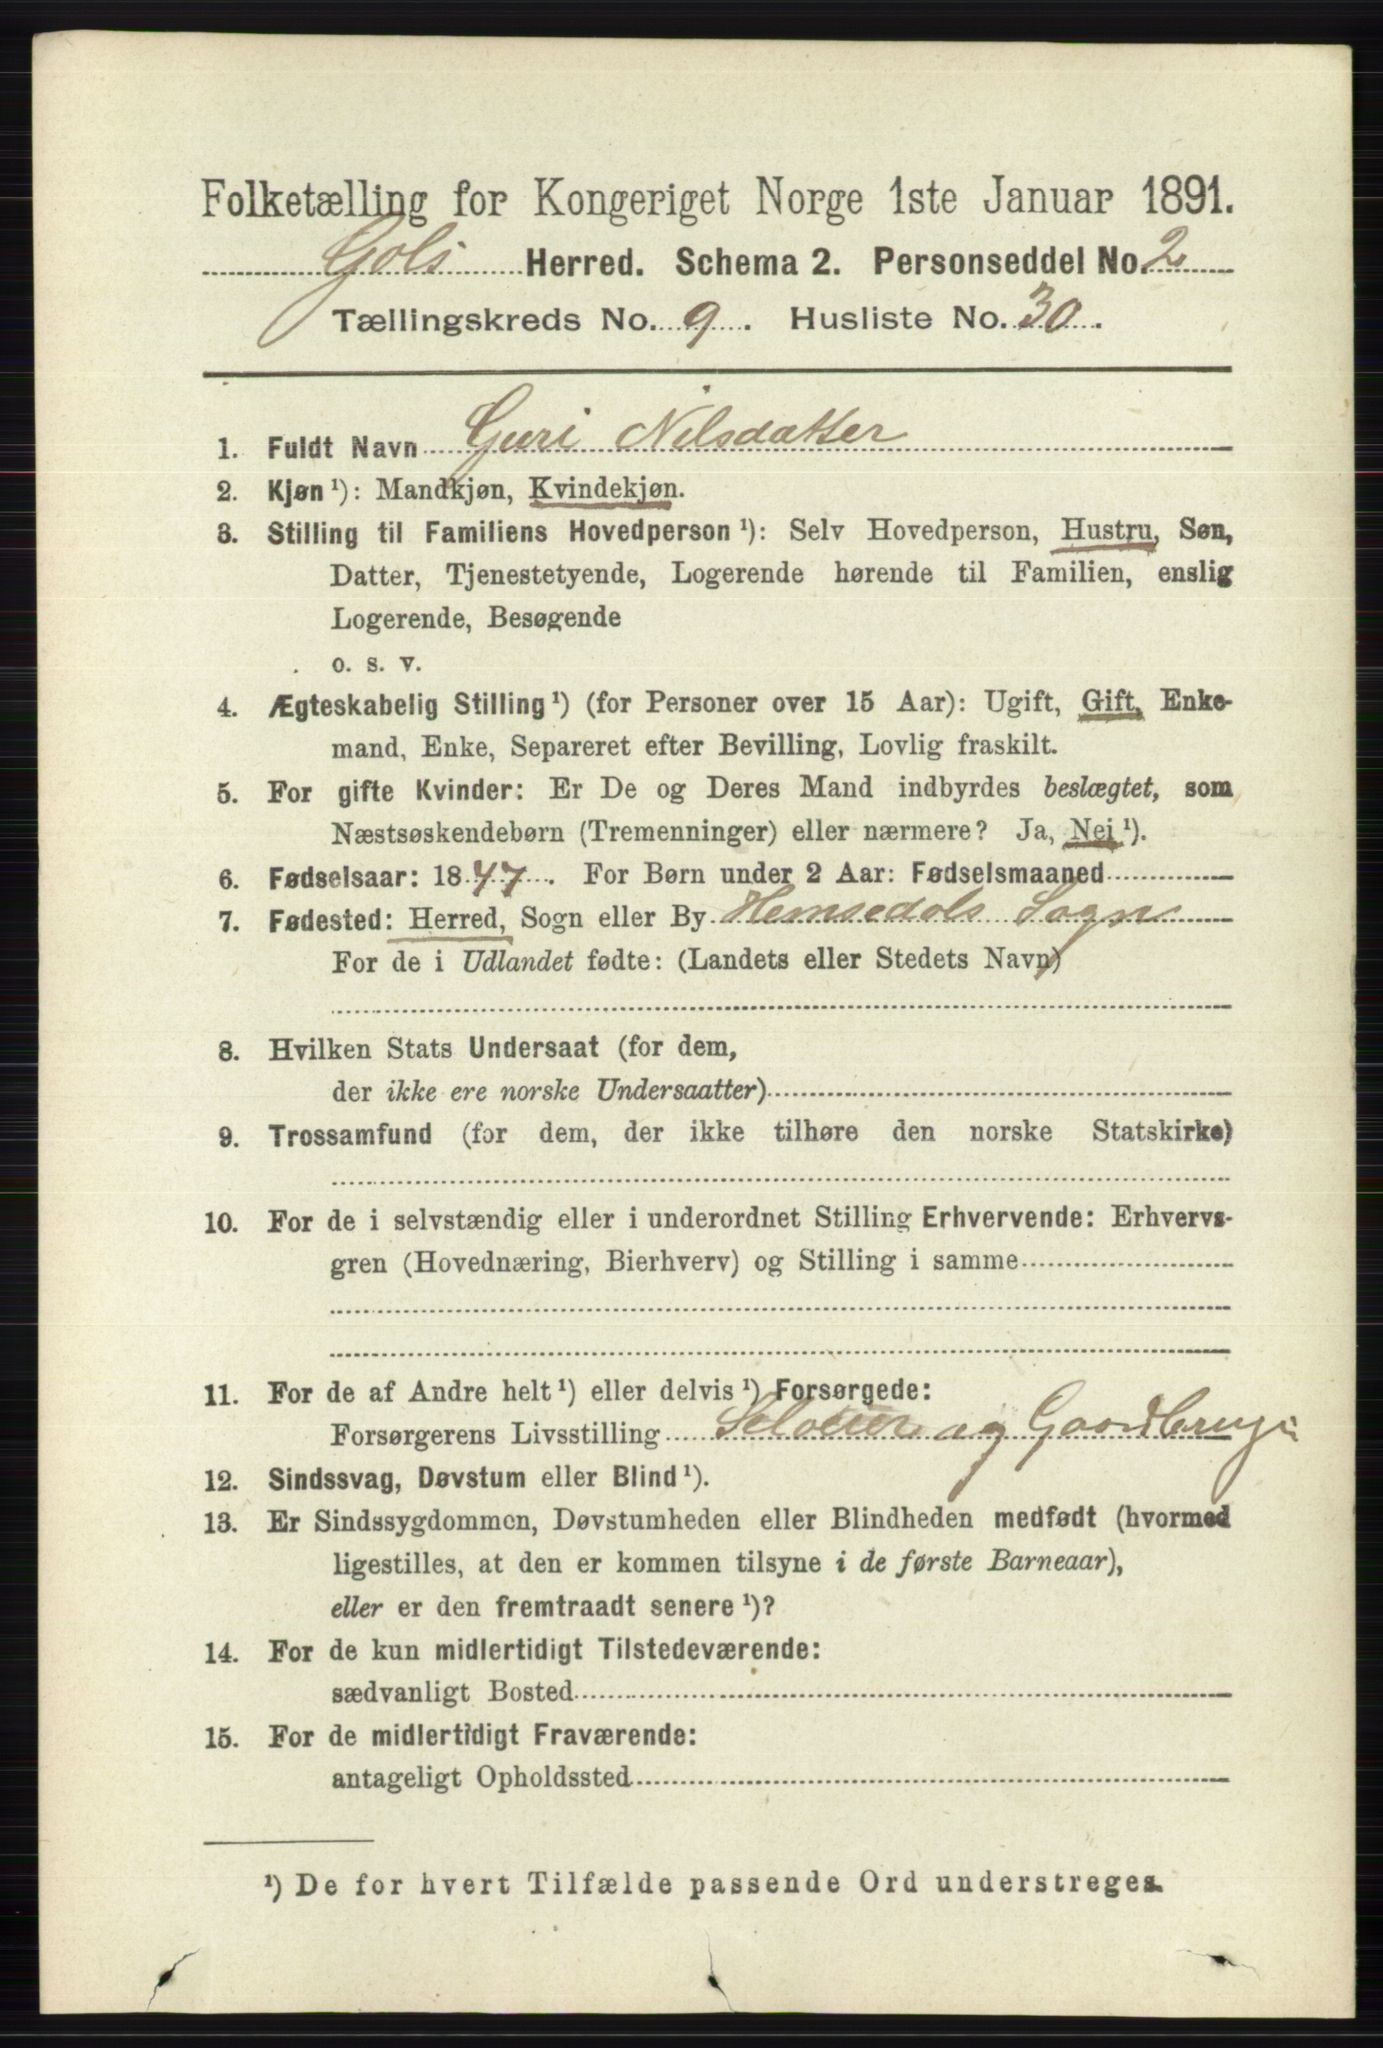 Folketælling for Kongeriget Norge 1ste Januar 1891.
Gols Herred. Schema 2. Personseddel No. 2
Tællingskreds No. 9. Husliste No. 30.
1. Fuldt Navn Guri Nilsdatter
2. Kjøn ¹): Mandkjøn, Kvindekjøn.
3. Stilling til Familiens Hovedperson ¹): Selv Hovedperson, Hustru, Søn,
Datter, Tjenestetyende, Logerende hørende til Familien, enslig
Logerende, Besøgende
o. s. v.
4. Ægteskabelig Stilling ¹) (for Personer over 15 Aar): Ugift, Gift, Enke-
mand, Enke, Separeret efter Bevilling, Lovlig fraskilt.
5. For gifte Kvinder: Er De og Deres Mand indbyrdes beslægtet, som
Næstsøskendebørn (Tremenninger) eller nærmere? Ja, Nei ¹).
6. Fødselsaar: 1847. For Børn under 2 Aar: Fødselsmaaned
7. Fødested: Herred, Sogn eller By Hemsedals Sogn
For de i Udlandet fødte: (Landets eller Stedets Navn)
8. Hvilken Stats Undersaat (for dem,
der ikke ere norske Undersaatter)
9. Trossamfund (for dem, der ikke tilhøre den norske Statskirke)
10. For de i selvstændig eller i underordnet Stilling Erhvervende: Erhvervs-
gren (Hovednæring, Bierhverv) og Stilling i samme
11. For de af Andre helt ¹) eller delvis ¹) Forsørgede:
Forsørgerens Livsstilling Selveier og Gaardbruger
12. Sindssvag, Døvstum eller Blind ¹).
13. Er Sindssygdommen, Døvstumheden eller Blindheden medfødt (hvormed
ligestilles, at den er kommen tilsyne i de første Barneaar),
eller er den fremtraadt senere ¹)?
14. For de kun midlertidigt Tilstedeværende:
sædvanligt Bosted
15. For de midlertidigt Fraværende:
antageligt Opholdssted
¹) De for hvert Tilfælde passende Ord understreges.